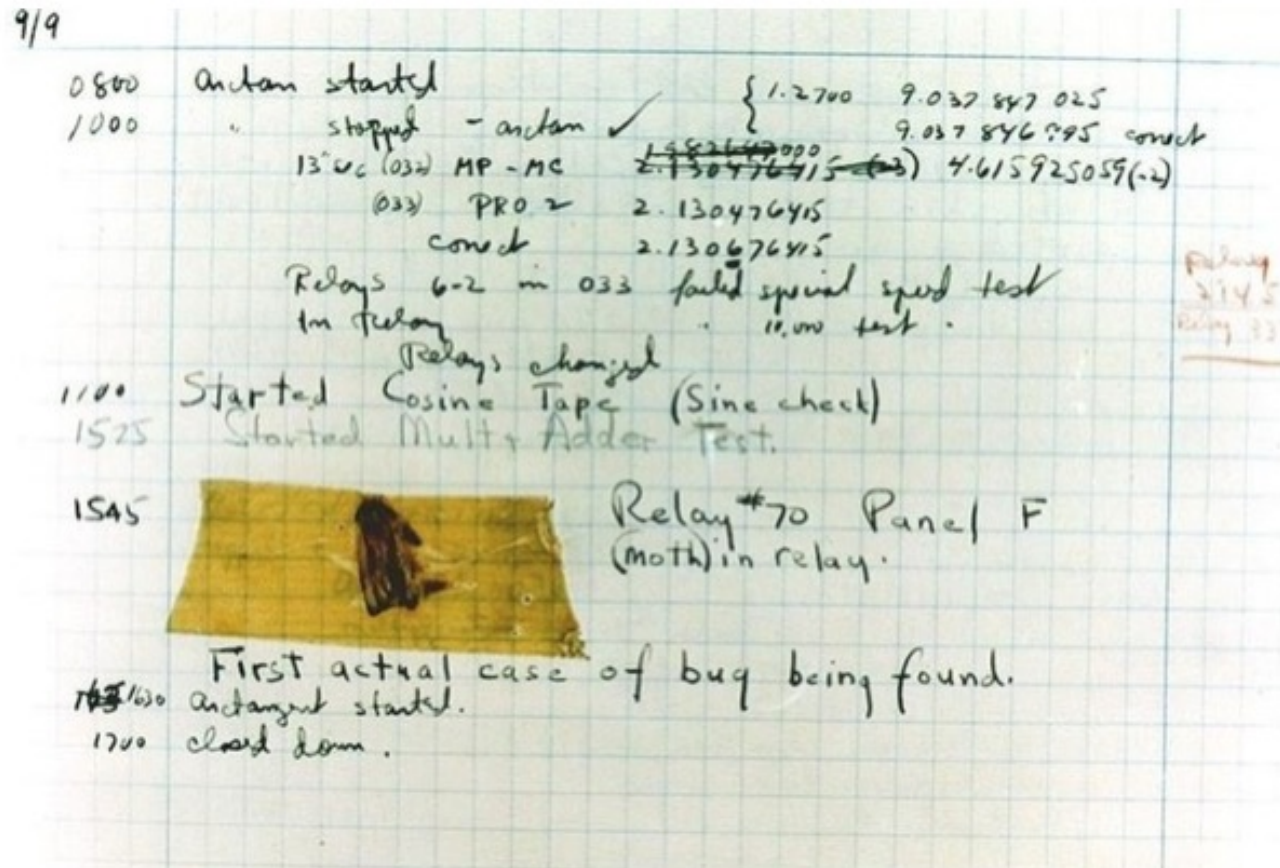 9/9
0800 arctan started { 1.2700 9.037 847 025
1000 " stopped - arctan ✓ 9.037 846 995 correct
13" uc (032) MP - MC 2.130476415 (-3) 4.615925059(-2)
(033) PRO 2 2.130476415
correct 2.130676415
Relays 6-2 in 033 failed special speed test
In Relay " 10,000 test .
Relay
2145
Relay 33
Relays changed
1100 Started Cosine Tape (Sine check)
1525 Started Mult + Adder Test.
1545 Relay #70 Panel F
(moth) in relay.
First actual case of bug being found.
1630 arctangent started.
1700 closed down.